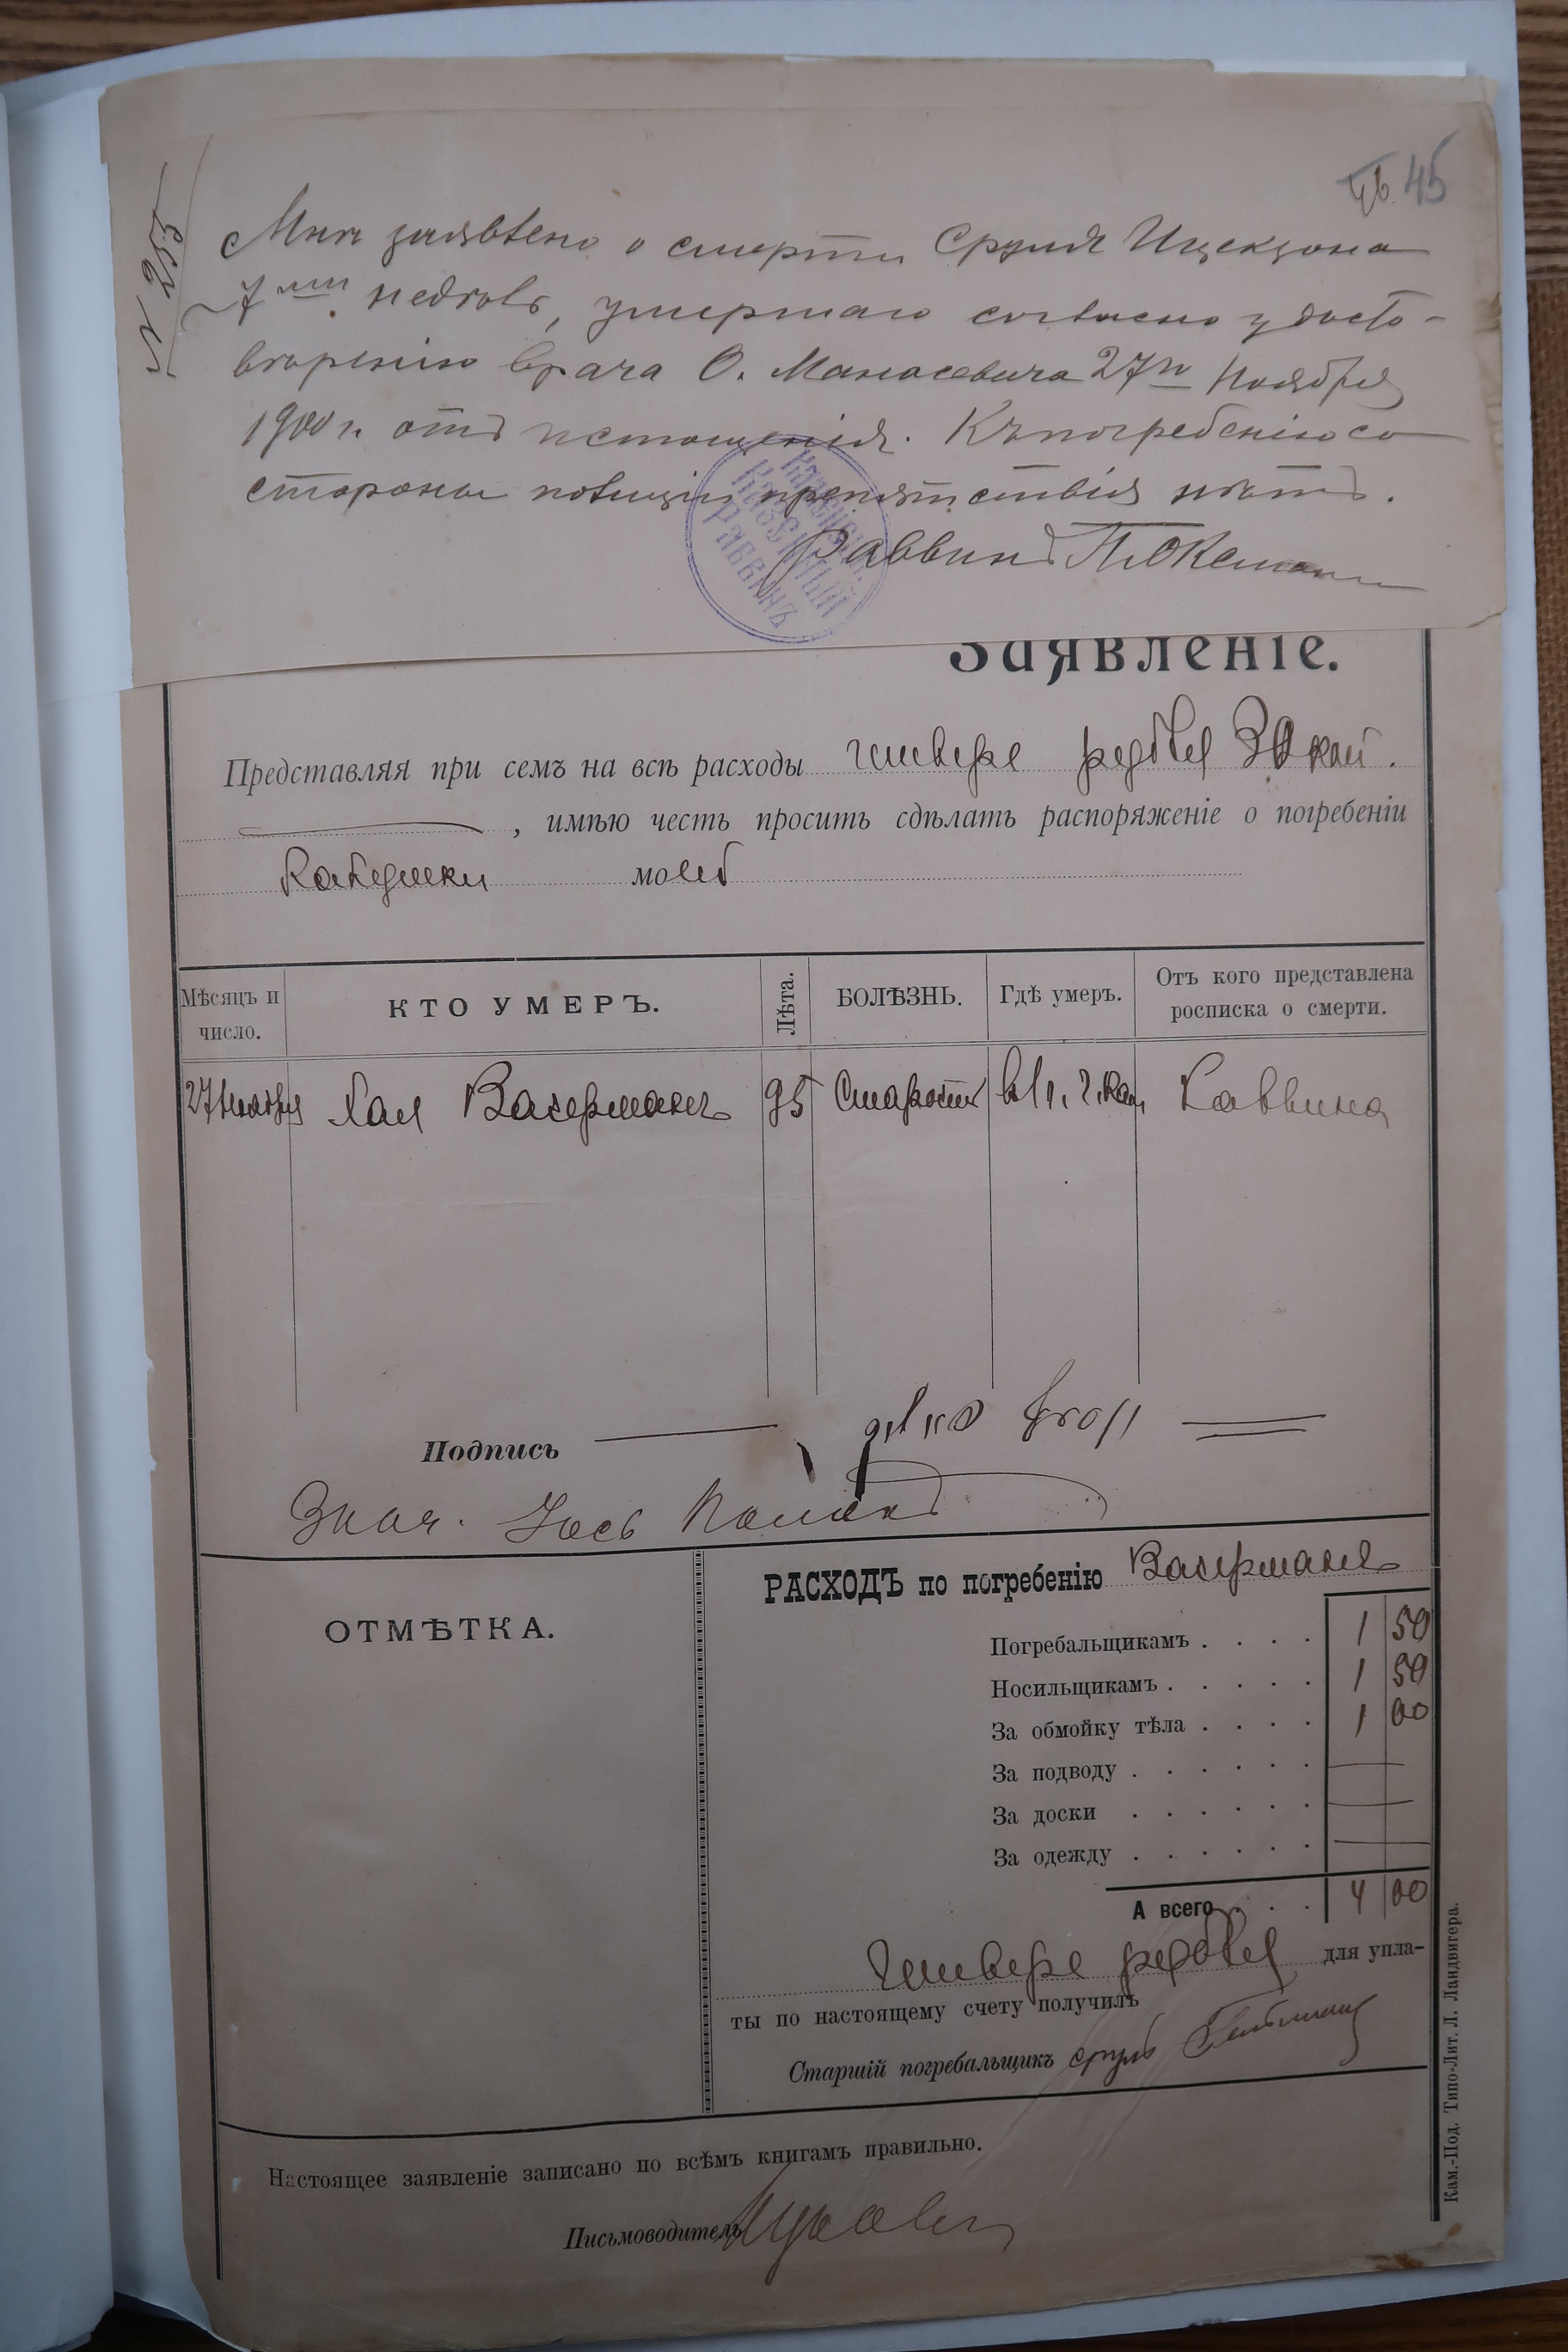 45
N 255
Мнѣ заявлено о смерти Сруля Ицексона
7ми недѣль, умершаго согласно удосто-
вѣренію врача О. Манасевича 27го Ноября
1900 г. отъ истощенія. Къ погребенію со
стороны полиціи препятствія нѣтъ.
Раввинъ
Казенный
Раввинъ
Заявленіе.
Представляя при семъ на всѣ расходы четыре рубля 30 коп.
, имѣю честь просить сдѣлать распоряженіе о погребеніи
бабушки моей
Мѣсяцъ и число.
КТО УМЕРЪ.
Лѣта.
БОЛѢЗНЬ.
Гдѣ умеръ.
Отъ кого представлена росписка о смерти.
27 ноября Хая Васерманъ 95 Старость Раввина
Подпись
РАСХОДЪ по погребенію Васерманъ
ОТМѢТКА.
Погребальщикамъ . . . . 1 50
Носильщикамъ . . . . . 1 50
За обмойку тѣла . . . . 1 00
За подводу . . . . . .
За доски . . . . . .
За одежду . . . . . .
А всего . . . 4 00
Четыре рубля для упла-
ты по настоящему счету получилъ
Старшій погребальщикъ Сруль
Настоящее заявленіе записано по всѣмъ книгамъ правильно.
Письмоводитель
Кам.-Под. Типо-Лит. Л. Ландвигера.